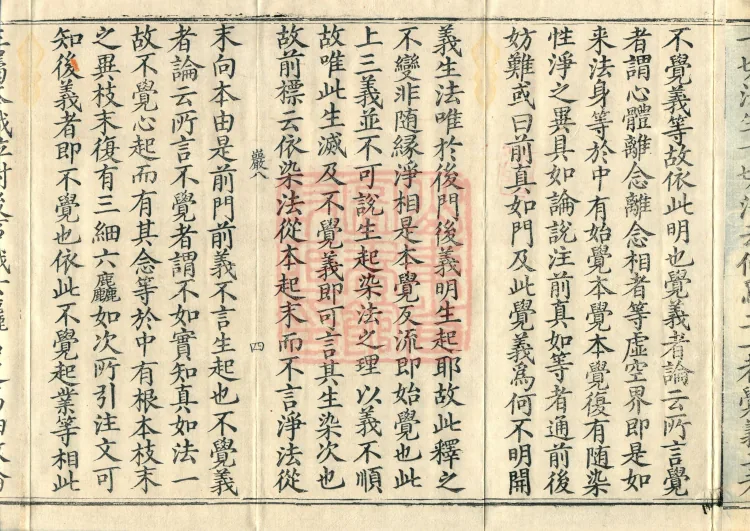 不覺義等故依此明也覺義者論云所言覺
者謂心體離念離念相者等虛空界即是如
來法身等於中有始覺本覺本覺復有随染
性淨之異具如論說注前真如等者通前後
妨難或曰前真如門及此覺義為何不明開
義生法唯於後門後義明生起耶故此釋之
不變非随緣淨相是本覺反流即始覺也此
上三義並不可說生起染法之理以義不順
故唯此生滅及不覺義即可言其生染次也
故前標云依染法從本起末而不言淨法從
巖八
四
末向本由是前門前義不言生起也不覺義
者論云所言不覺者謂不如實知真如法一
故不覺心起而有其念等於中有根本枝末
之異枝末復有三細六麤如次所引注文可
知後義者即不覺也依此不覺起業等相此